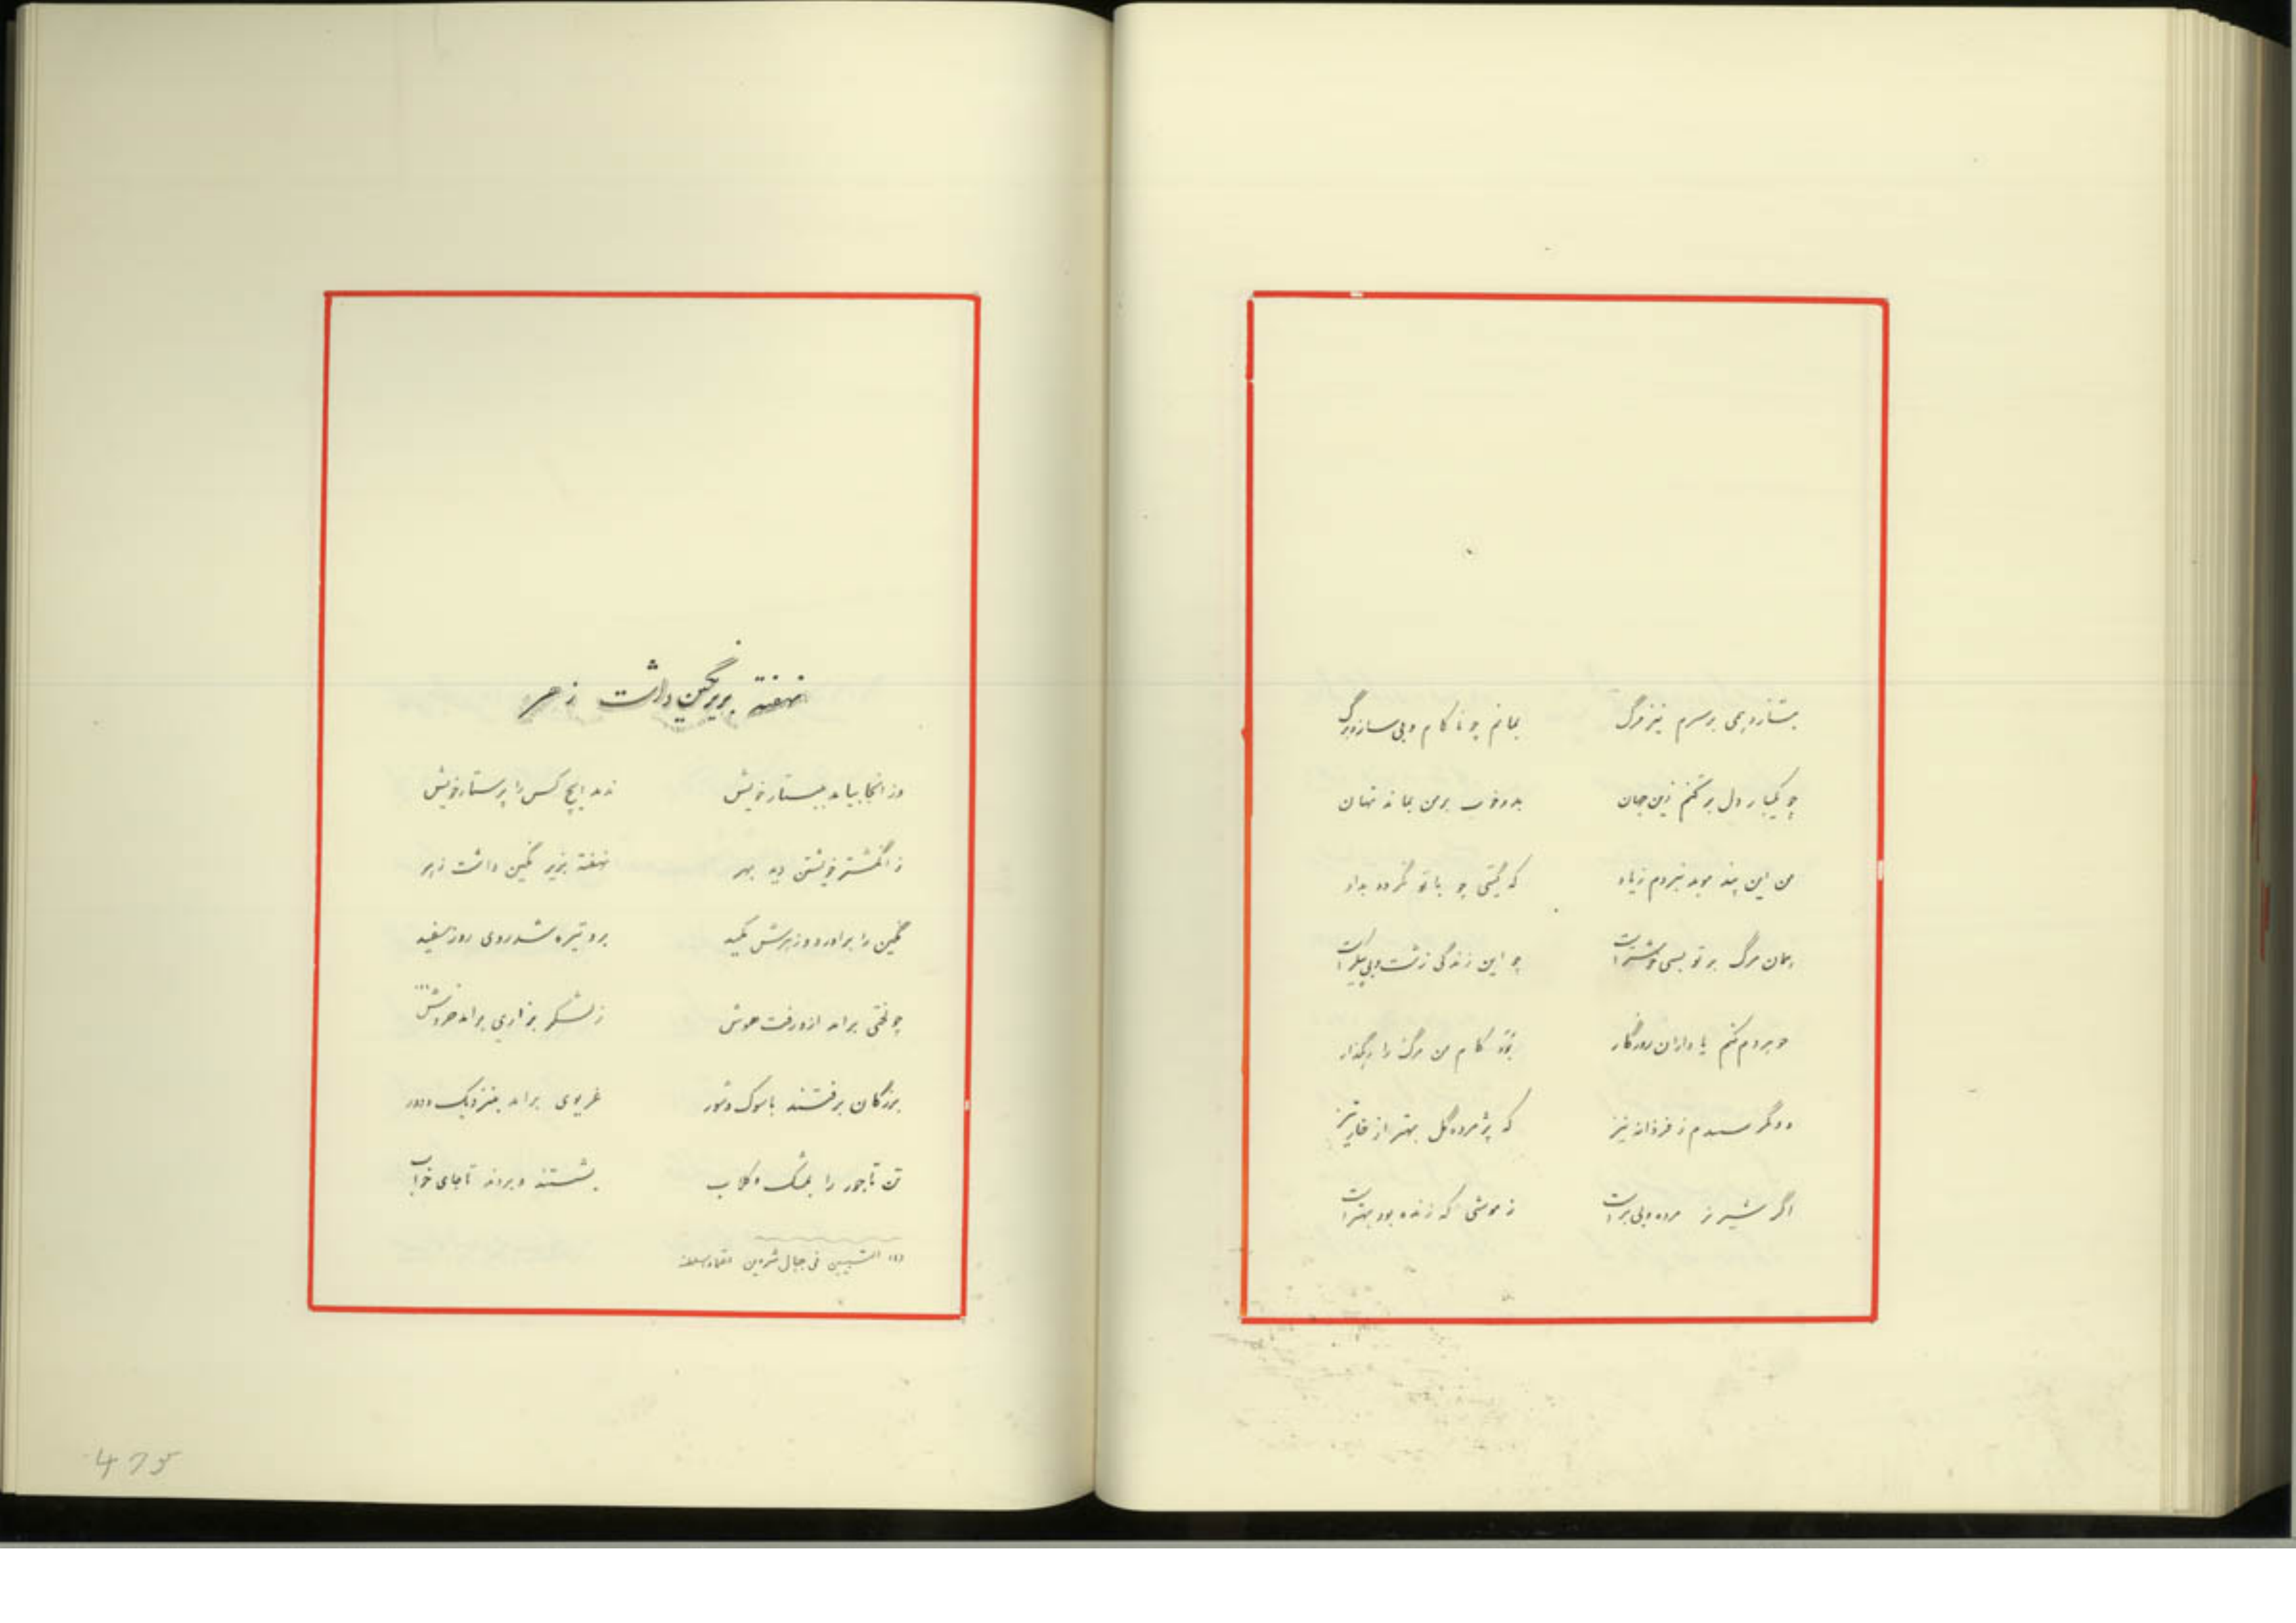 بتازد همی بر سرم نیز مرگ بمانم چو ناکام و بی ساز و برگ
چو یکبار دل بر کنم زین جهان بد و خوب بر من بماند نهان
من این پند موبد نبردم ز یاد که گیتی چو با تو نگردد بداد
همان مرگ بر تو بسی خوشتر است چو این زندگی زشت و بی پیکر است
کنم روزگار بود کام من مرگ را
ز فرزانه نیز که پژمرده گل بهتر از خار تیز
اگر شیر نر مرده و بی بر است ز موشی که زنده بود بهتر است
نهفته بزیر نگین داشت زهر
وز آنجا بیامد خویش ندید ایچ کس را پرستار خویش
ز انگشتر خویشتن دید بهر نهفته بزیر نگین داشت زهر
نگین را برآورد و زهرش مکید برو تیره شد روی روز سفید
چو لختی برآمد ازو رفت هوش ز لشکر بزاری برآمد خروش
بزرگان برفتند با سوک و شور غریوی برآمد بنزدیک و دور
تن تاجور را بمشک و گلاب بشستند و بردند تا جای خواب
فی جبال شروین
475